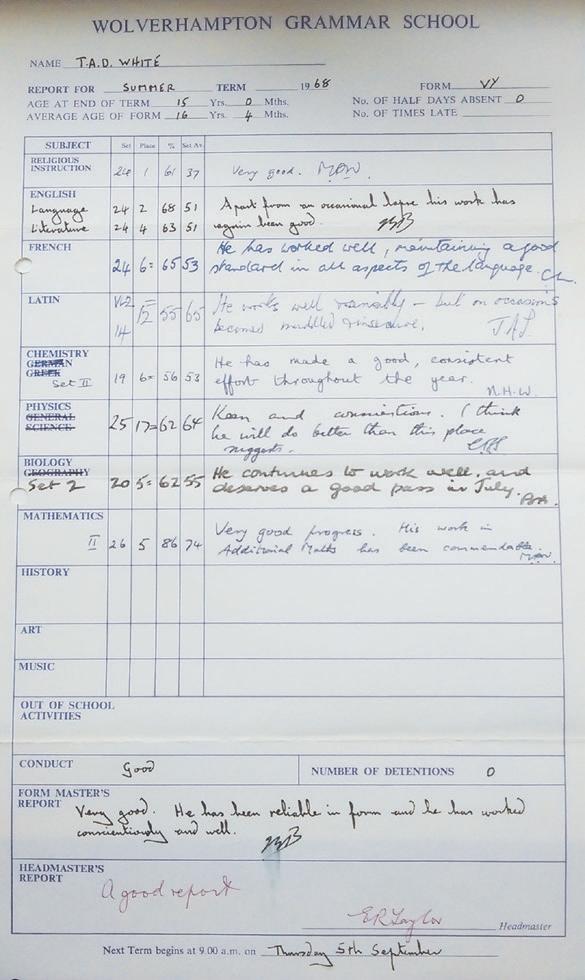 WOLVERHAMPTON GRAMMAR SCHOOL
NAME T.A.D. WHITE
REPORT FOR SUMMER TERM 1968 FORM VY
AGE AT END OF TERM 15 Yrs. 0 Mths. No. OF HALF DAYS ABSENT 0
AVERAGE AGE OF FORM 16 Yrs. 4 Mths. No. OF TIMES LATE
SUBJECT Set Place % Set Av.
RELIGIOUS
INSTRUCTION 24 1 61 37 Very good.
ENGLISH
Language 24 2 68 51 Apart from an occasional lapse his work has
Literature 24 4 63 51 again been good.
FRENCH He has worked well, maintaining a good
24 6= 65 53 standard in all aspects of the language.
LATIN 12= 55 65 He works well – but on occasions
14 becomes muddled
CHEMISTRY He has made a good, consistent
GERMAN
GREEK
Set II 19 6= 56 53 effort throughout the year. N.H.W.
PHYSICS Keen and conscientious. I think
GENERAL
SCIENCE 25 17= 62 64 he will do better than this place
suggests.
BIOLOGY He continues to work well, and
GEOGRAPHY
Set 2 20 5= 62 55 deserves a good pass in July.
MATHEMATICS Very good progress. His work in
II 26 5 86 74 Additional Maths has been commendable.
HISTORY
ART
MUSIC
OUT OF SCHOOL
ACTIVITIES
CONDUCT Good NUMBER OF DETENTIONS 0
FORM MASTER'S
REPORT Very good. He has been reliable in form and he has worked
conscientiously and well.
HEADMASTER'S
REPORT A good report
ERTaylor Headmaster
Next Term begins at 9.00 a.m. on Thursday 5th September